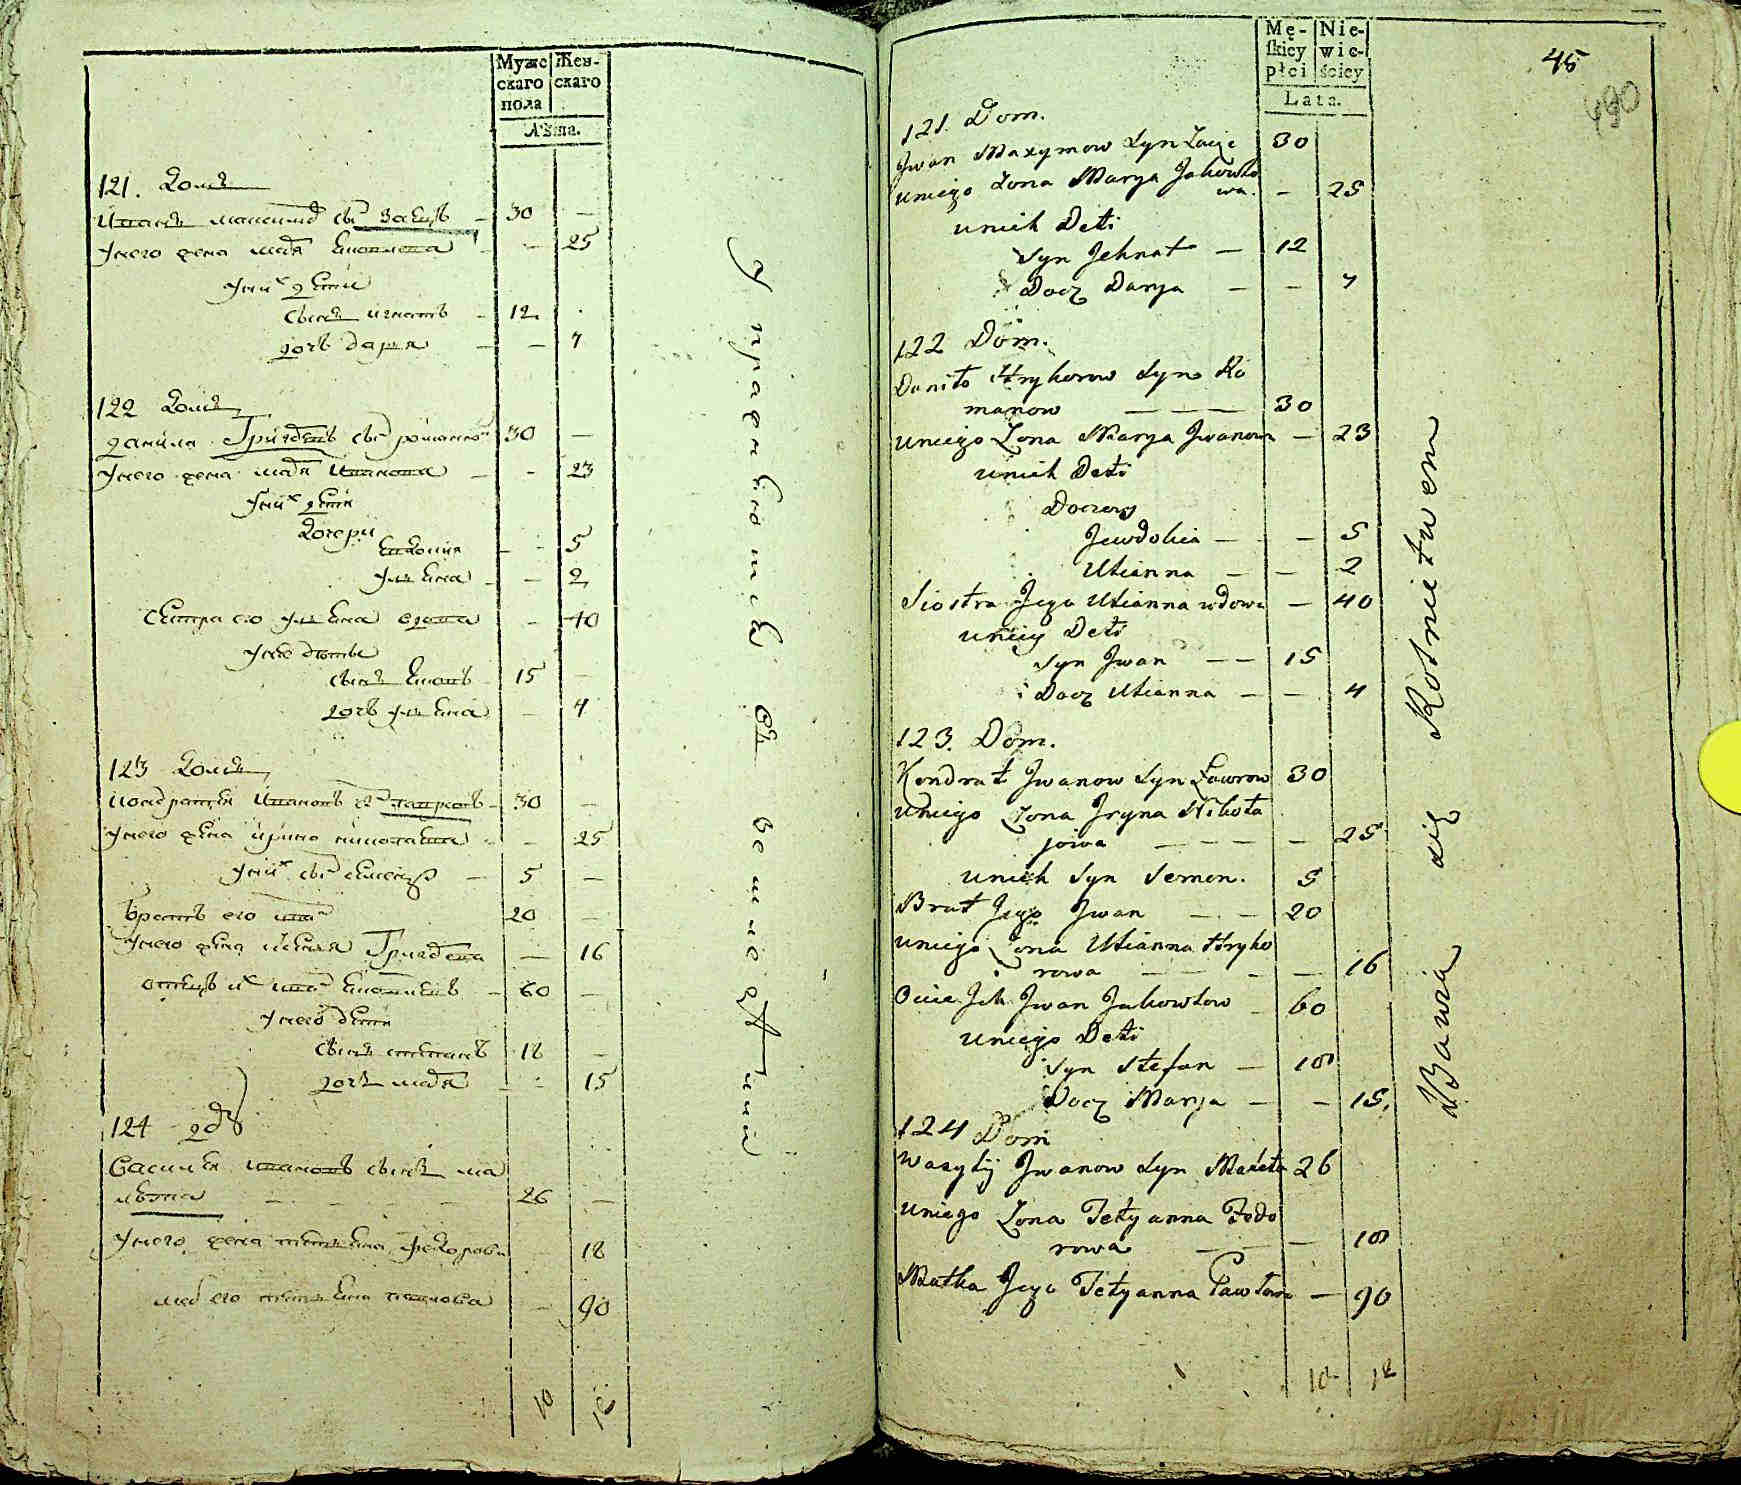 Мужескаго пола
Женскаго
Лѣта.
121. Домъ
Иванъ Максимовъ сынъ Заецъ – 30 –
У него жена Марья Яковлева – – 25
У нихъ дѣти
сынъ Игнатъ – 12
дочь Дарья – – 7
122 Домъ
Данила Григоревъ сынъ Романов 30 –
У него жена Марья Иванова – – 23
У нихъ дѣти
Дочери
Евдокия – – 5
Ульяна – – 2
Сестра его Ульяна вдова – 40
У нее дѣти
сынъ Иванъ 15 –
дочь Ульяна – 4
123 Домъ
Кондратей Ивановъ сынъ Лавровъ – 30 –
У него жена Ирина Николаева – – 25
У нихъ сынъ Семенъ – 5 –
Братъ его Иванъ 20 –
У него жена Ульяна Григорева – 16
Отецъ ихъ Иванъ Яковлевъ – 60 –
У него дѣти
сынъ Степанъ 18 –
дочь Марья – – 15
124 Домъ
Василей Ивановъ сынъ Ма
26 –
У него жена Татьяна Федорова 18
Мать его Татьяна Павлова – 90
10 12
Упражняются въ земледѣлии
Męskiey płci
Niewieściey
Lata.
45
490
121. Dom.
Jwan Maxymow Syn Zaiąc 30
uniego Zona Marya Jakowlo
wa. – 25
unich Deti
Syn Jehnat – 12
Docz Darya – – 7
122 Dom.
Daniło Hryhorow Syn Ro
manow – – – 30
uniego Zona Marya Jwanowa – 23
unich Deti
Doczery
Jewdokia – – 5
Ulianna – – 2
Siostra Jego Ulianna wdowa – 40
uniey Deti
Syn Jwan – – 15
Docz Ulianna – – 4
123. Dom.
Kondrat Jwanow Syn Ławrow 30
uniego Zona Jryna Nikoła
jowa – – – – 25
unich Syn Semen. 5
Brat Jego Jwan – – 20
uniego Zona Ulianna Hryho
rowa – – – – 16
Ociec Jch Jwan Jakowlow – 60
uniego Deti
Syn Stefan – 18
Docz Marya – – 15.
124 Dom
Wasylij Jwanow Syn 26
uniego Zona Tetyanna Fedo
rowa – – 18
Matka Jego Tetyanna Pawłowa – 90
10 12
Bawią się Rolnictwem